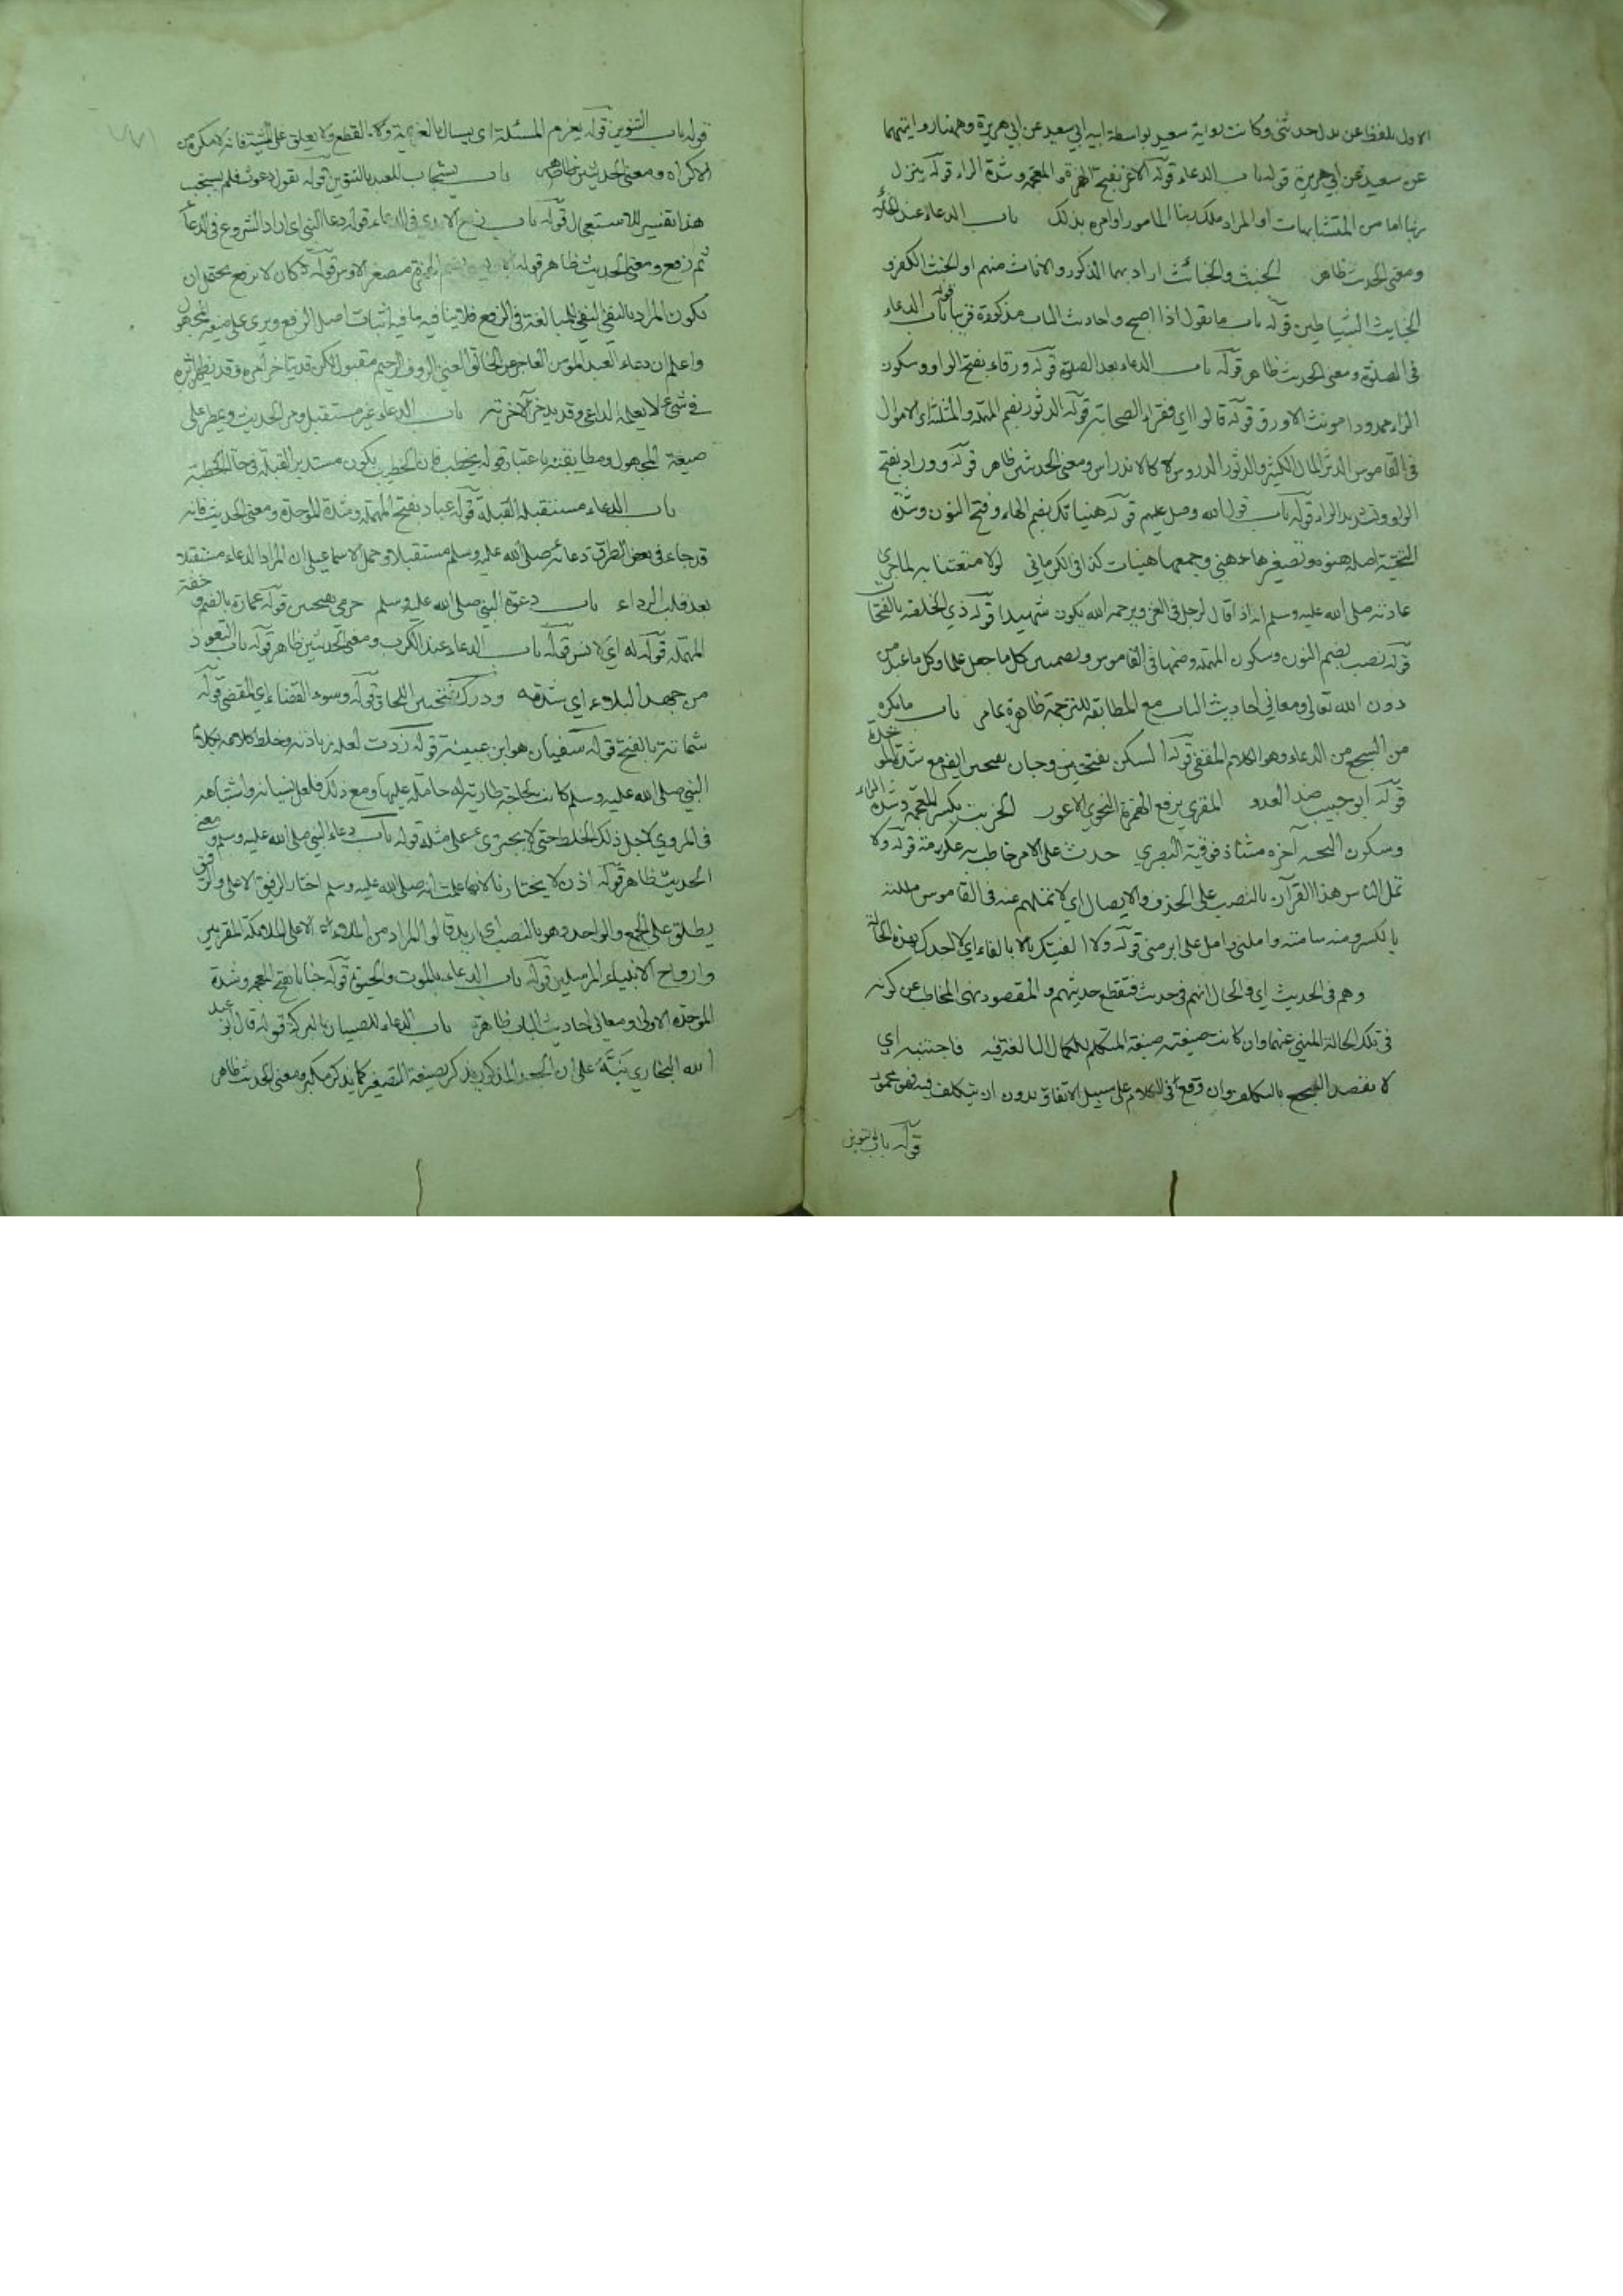 الاول بلفظ عن بدل حدثنى وكانت رواية سعيد بواسطة ابيه ابي سعيد عن ابي هريرة وههنا روايتهما
عن سعيد عن ابي هريرة قوله باب الدعاء قوله الاغر بفتح الهمزة والمعجمة وشدة الراء قوله ينزل
ربنا اما من المتشابهات او المراد ملك ربنا المامور اوامره بذلك باب الدعاء عند الخلاء
ومعنى الحديث ظاهر الخبث والخبائث اراد بهما الذكور والاناث منهم او الخبث الكفر و
الخبايث الشياطين قوله باب ما يقول اذا اصبح واحاديث الباب مذكورة قريبا قوله باب الدعاء
فى الصلوة ومعنى الحديث ظاهر قوله باب الدعاء بعد الصلوة قوله ورقاء بفتح الواو وسكون
الراء ممدودا مونث الاورق قوله قالوا اي فقراء الصحابة قوله الدثور بضم المهملة والمثلثة اي الاموال
فى القاموس الدثر المال الكثير والدثور الدروس كالاندراس ومعنى الحديثين ظاهر قوله وراد بفتح
الواو وتشديد الراء قوله باب قول الله وصل عليهم قوله هنياتك بضم الهاء وفتح النون وشدة
التحتية اصله هنوة وتصغيرها هنية وجمعها هنيات كذا فى الكرماني لولا متعتنا به لما جرى
عادته صلى الله عليه وسلم انه اذا قال لرجل فى الغزو يرحمه الله يكون شهيدا قوله ذي الخلصة بالفتحات
قوله نصب بضم النون وسكون المهملة وضمها فى القاموس وبضمتين كل ما جعل علما وكل ما عبد من
دون الله تعالى ومعاني احاديث الباب مع المطابقة للترجمة ظاهرة باب ما يكره
من السجع من الدعاء وهو الكلام المقفى قوله السكن بفتحتين وحبان بفتح مع شدة الموحدة
قوله ابو حبيب ضد العدو المقري برفع الهمزة النحوي الاعور الخريت بكسر المعجمة وشدة الراء
وسكون آخره مثناة فوقية البصري حدث على الامر خاطب به عكرمة قوله ولا
تمل الناس هذا القرآن بالنصب على الحذف والايصال اي لا تملهم عنه فى القاموس مللته
بالكسر ومنه سامته واملني وامل علي ابرمني قوله ولا الفينك بالفاء اي لا اجدك بهذه الحالة
وهم فى الحديث اي والحال انهم فى حديث فتقطع حديثهم والمقصود نهى المخاطب عن كونه
فى تلك الحالة المنهي عنها وان كانت صيغته صيغة المتكلم للكمال المبالغة فيه فاجتنبه اي
لا تقصد السجع بالتكلف وان وقع فى الكلام على سبيل الاتفاق بدون ان يتكلف فيه فهو محمود
قوله باب بالتنوين
قوله باب بالتنوين قوله يعزم المسئلة اى يسال بالعزيمة والقطع ولا يعلق على المشية فانه لا مكره من
الاكراه ومعنى الحديثين ظاهر باب يستجاب للعبد بالتنوين قوله يقول دعوت فلم يستجب
هذا تفسير للاستعجال قوله باب رفع الايدي فى الدعاء قوله دعا النبي اى اراد الشروع فى الدعاء
ثم رفع ومعنى الحديث ظاهر قوله بضم الهمزة مصغر الاوس قوله كان لا يرفع يحتمل ان
يكون المراد بالنفي النفي للمبالغة فى الرفع فلا ينافيه ما فيه اثبات اصل الرفع ويرى على صيغة المجهول
واعلم ان دعاء العبد المومن العاجز عن الخالق الغني الروف الرحيم مقبول لكن قد يتاخر اثره وقد يظهر اثره
فى شئ لا يعلمه الداعى وقد يدخر لآخرته باب الدعاء غير مستقبل ومر الحديث ويمطر على
صيغة المجهول ومطابقته باعتبار قوله يخطب فان الخطيب يكون مستدبر القبلة فى حالة الخطبة
باب الدعاء مستقبل القبلة قوله عباد بفتح المهملة وشدة الموحدة ومعنى الحديث فانه
قد جاء فى بعض الطرق دعائه صلى الله عليه وسلم مستقبلا وحمل الاسماعيلي ان المراد الدعاء مستقبلا
بعد قلب الرداء باب دعوة النبي صلى الله عليه وسلم حرمي بفتحتين قوله عمارة بالضم وخفة
المهملة قوله له اي لانس قوله باب الدعاء عند الكرب ومعنى الحديثين ظاهر قوله باب التعوذ
من جهد البلاء اي شدته ودرك بفتحتين اللحاق قوله وسوء القضاء اي المقضي قوله
شماتة بالفتح قوله سفيان هو ابن عيينة قوله زدت لعله زيادته وخلط كلامه بكلام
النبي صلى الله عليه وسلم كانت لحاجة طارية له حاملة عليها ومع ذلك فلعل نسيانه واشتباهه
فى المروي لاجل ذلك الخلط حتى لا يجترئ على مثله قوله باب دعاء النبي صلى الله عليه وسلم ومعنى
الحديث ظاهر قوله اذن لا يختارنا لانها علمت انه صلى الله عليه وسلم اختار الرفيق الاعلى والرفيق
يطلق على الجمع والواحد وهو بالنصب اى اريد قالوا المراد من الملاء الاعلى الملائكة المقربين
وارواح الانبياء المرسلين قوله باب الدعاء بالموت والحيوة قوله خبابا بفتح المعجمة وشدة
الموحدة الاولى ومعاني احاديث الباب ظاهرة باب الدعاء للصبيان بالبركة قوله قال ابو عبد
الله البخاري نبه على ان الجعد المذكور يذكر بصيغة التصغير كما يذكر مكبر ومعنى الحديث ظاهر